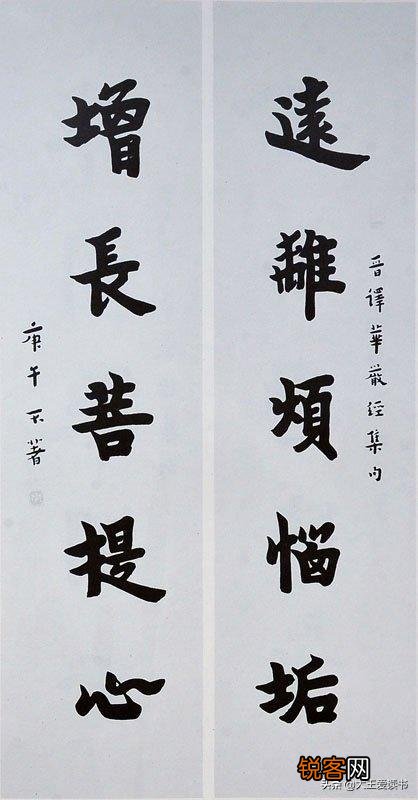 遠離煩惱垢
晉譯華嚴經集句
增長菩提心
庚午
锐客网
头条@大王爱读书